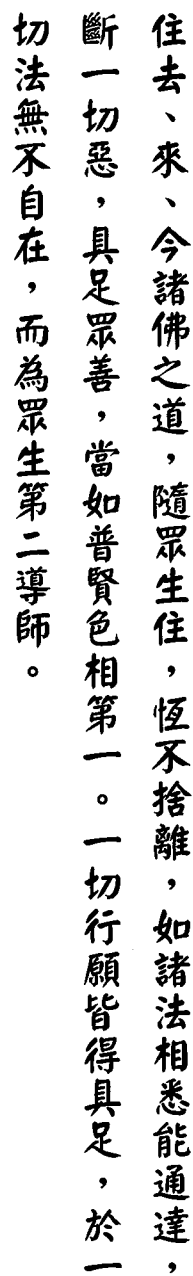 住去、來、今諸佛之道，隨眾生住，恆不捨離，如諸法相悉能通達，
斷一切惡，具足眾善，當如普賢色相第一。一切行願皆得具足，於一
切法無不自在，而為眾生第二導師。